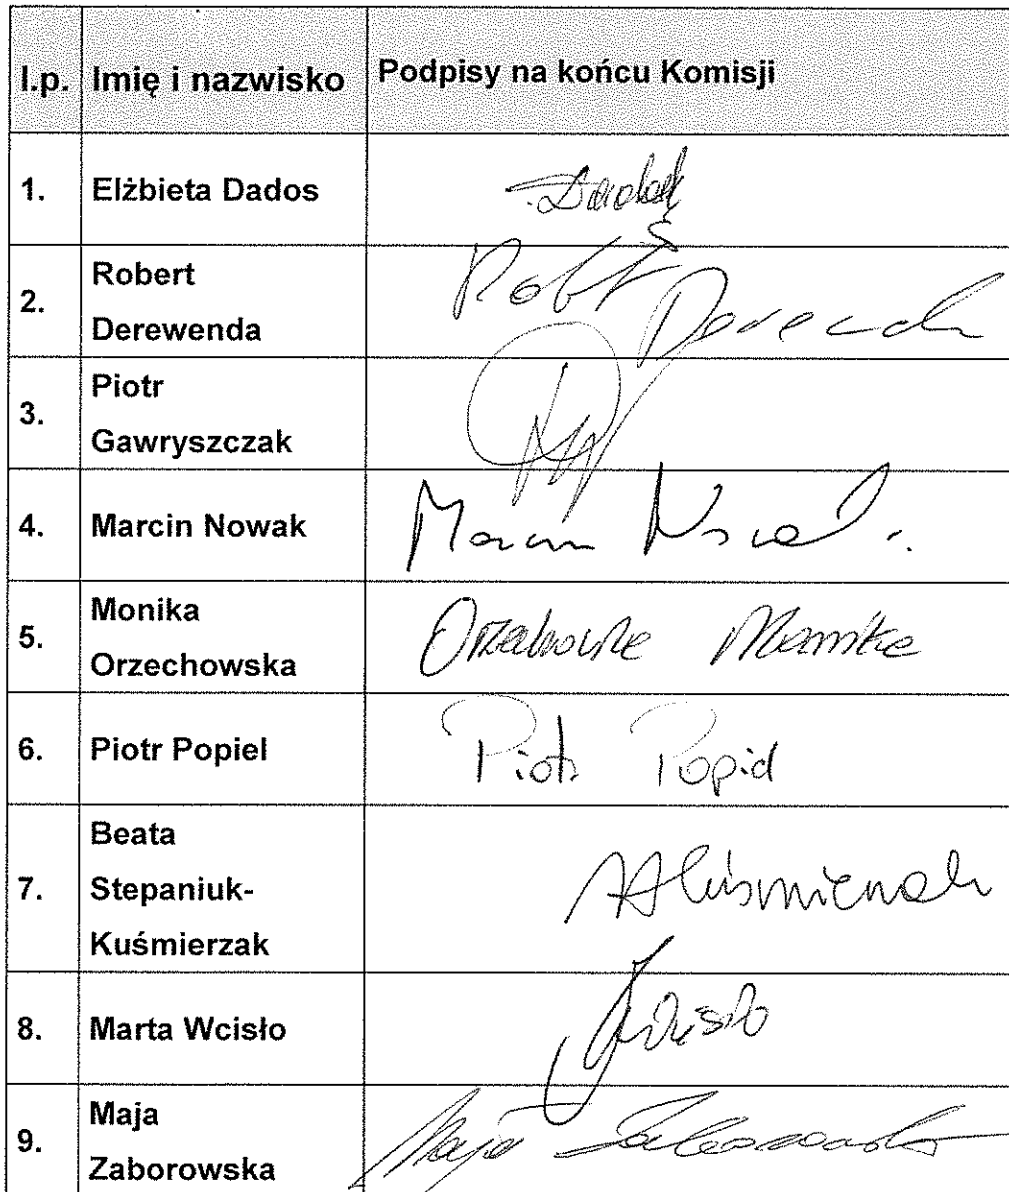 l.p. Imię i nazwisko Podpisy na końcu Komisji
1. Elżbieta Dados
Robert
2.
Derewenda
Robert Derewenda
Piotr
3.
Gawryszczak
4. Marcin Nowak Marcin Nowak
Monika
5.
Orzechowska
Orzechowska Monika
6. Piotr Popiel Piotr Popiel
Beata
7. Stepaniuk-
Kuśmierzak
8. Marta Wcisło Wcisło
Maja
9.
Zaborowska
Maja Zaborowska